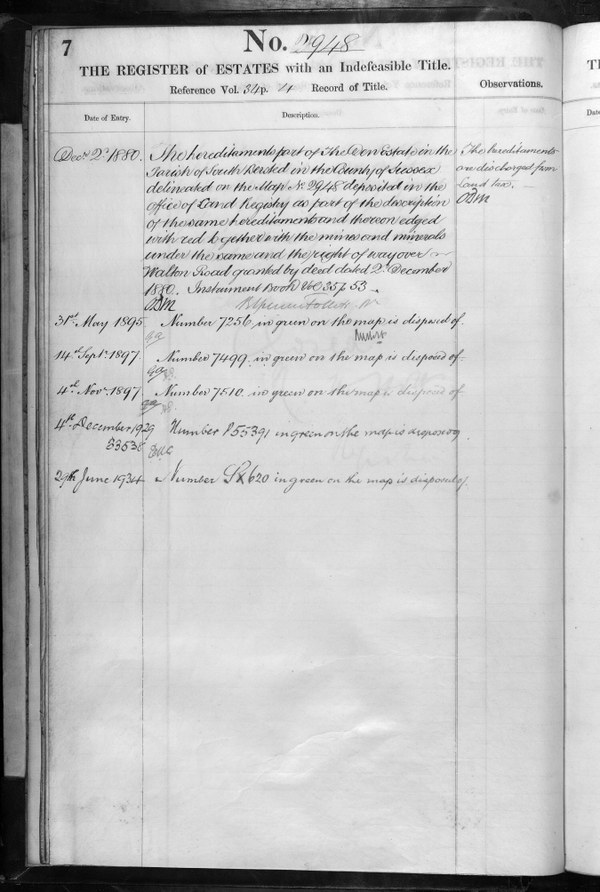 7
No. 2948
THE REGISTER of ESTATES with an Indefeasible Title.
Reference Vol. 34 p. 4 Record of Title.
Observations.
Date of Entry.
Description.
Decr 2d 1880.
The hereditaments part of The Den Estate in the
Parish of South Bersted in the County of Sussex
delineated on the Map No. 2948 deposited in the
office of Land Registry as part of the description
of the same hereditaments and thereon edged
with red together with the mines and minerals
under the same and the right of way over
Walton Road granted by deed dated 2d December
1880. Instrument Book Vol 35 p 53.
The hereditaments
are discharged from
Land tax.
31st May 1895
Number 7256 in green on the map is disposed of.
14th Septr 1897.
Number 7499 in green on the map is disposed of
4th Novr 1897
Number 7510 in green on the map is disposed of
4th December 1929
53538
Number P55391 in green on the map is disposed of
29th June 1934
Number Sx620 in green on the map is disposed of.